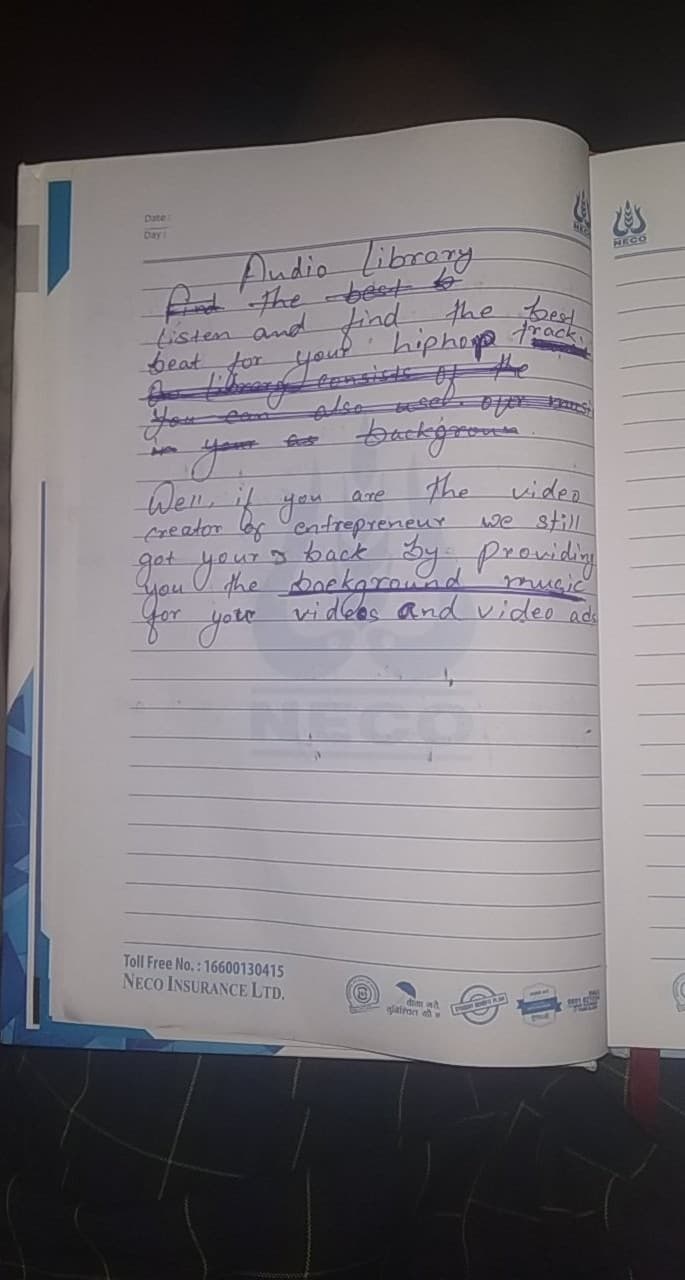 Date :
Day :
NECO
NECO
Audio Library
Find the best b
Listen and find the best
beat for your hiphop track.
Our library consists of the
You can also use our music
in your as backgroun
Well, if you are the video
creator of entrepreneur we still
got yours back by providing
you the background music
for your videos and video ads
NECO
Toll Free No. : 16600130415
NECO INSURANCE LTD.